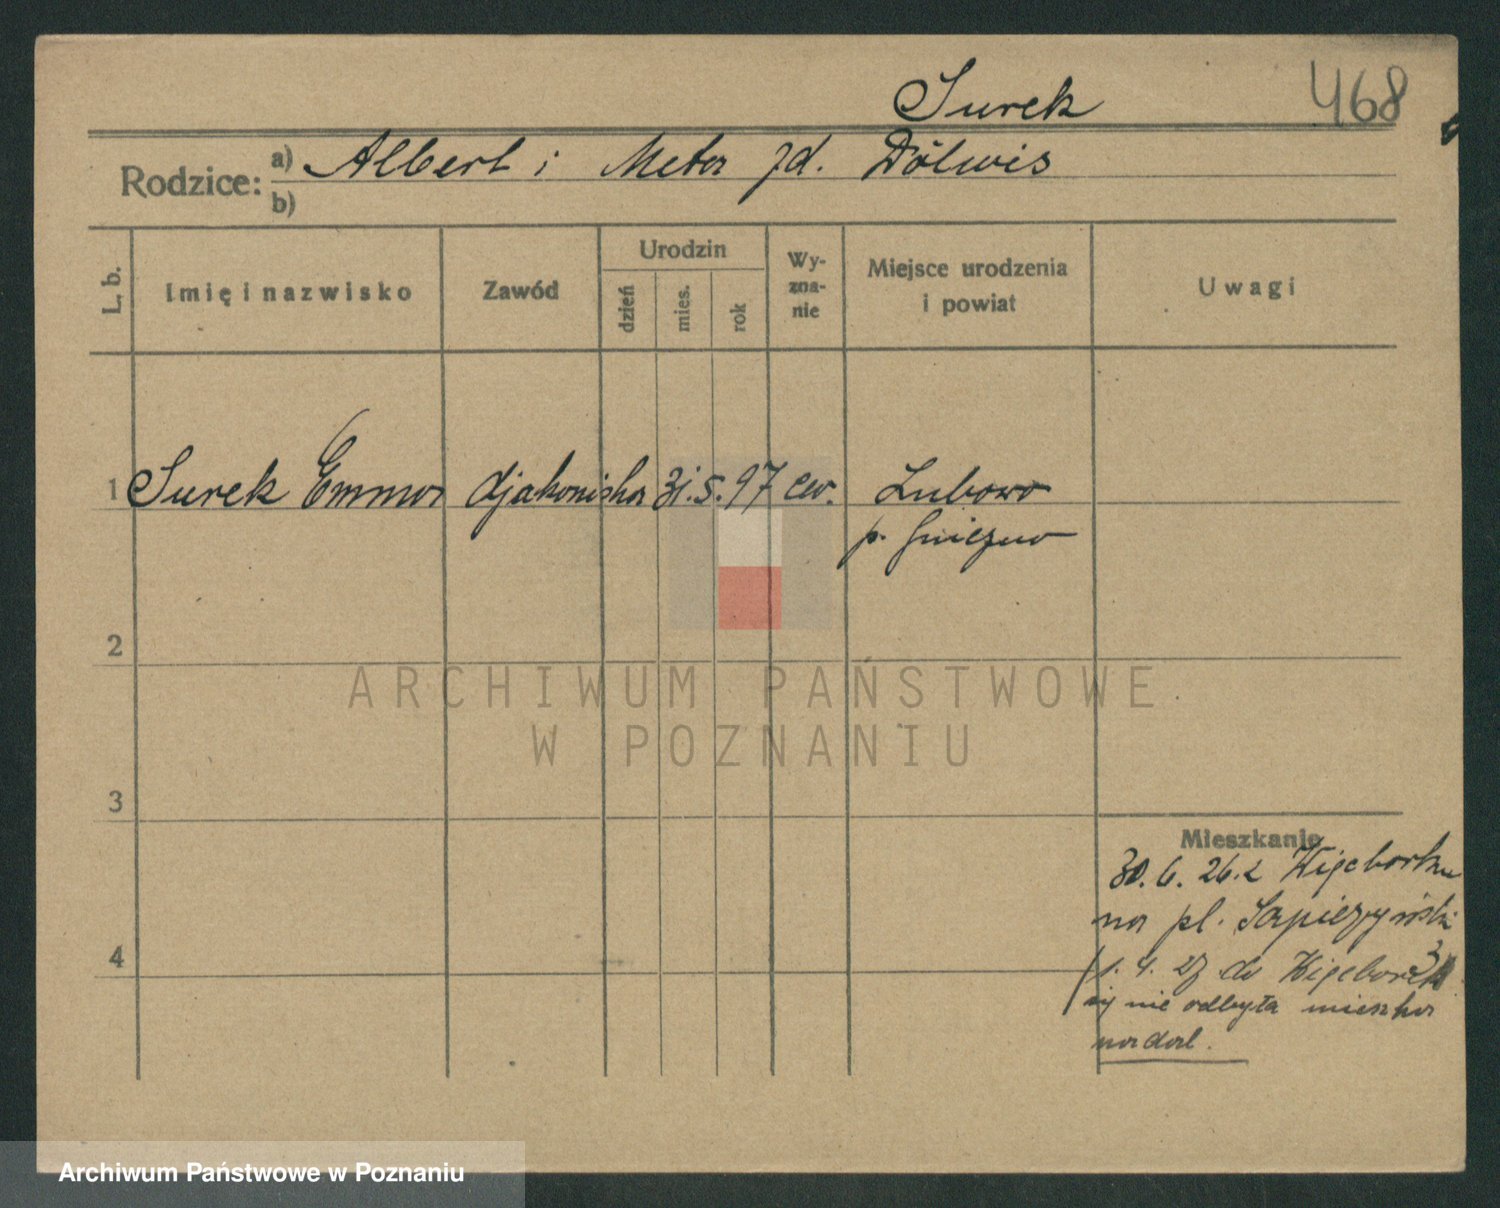 468
Surek
Rodzice: a) Albert i Meta zd. Dölwis
b)
L. b.
Imię i nazwisko
Zawód
Urodzin
dzień
mies.
rok
Wy-
zna-
nie
Miejsce urodzenia
i powiat
Uwagi
1 Surek Emma djakoniska 31. 5. 97 ew. Lubowo
p. Gniezno
2
ARCHIWUM PAŃSTWOWE
W POZNANIU
3
Mieszkanie
30. 6. 26. z
na pl. Sapieżyński
3
4
1. 4. 27 do
się nie odbyła mieszka
nadal.
Archiwum Państwowe w Poznaniu